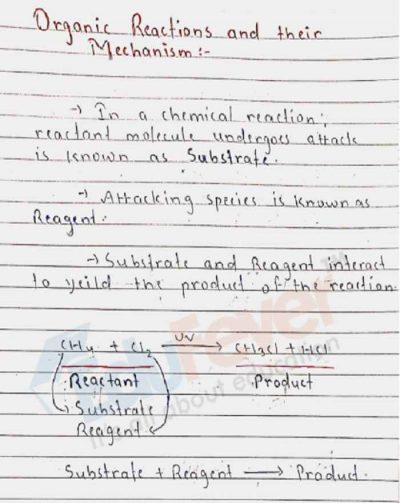 Organic Reactions and their
Mechanism:-
→ In a chemical reaction;
reactant molecule undergoes attack
is known as Substrate.
→ Attacking species is known as
Reagent.
→ Substrate and Reagent interact
to yeild the product of the reaction.
CH4 + Cl2 —UV→ CH3Cl + HCl
Reactant Product
Substrate
Reagent
Substrate + Reagent → Product.